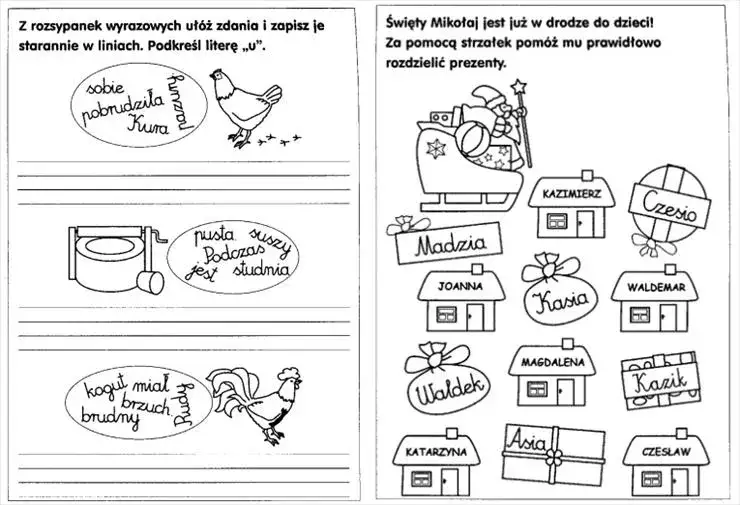 Z rozsypanek wyrazowych ułóż zdania i zapisz je
starannie w liniach. Podkreśl literę „u”.
sobie
pobrudziła
pazury
Kura
pusta suszy
Podczas
jest studnia
kogut miał
brzuch.
brudny
Gruby
Święty Mikołaj jest już w drodze do dzieci!
Za pomocą strzałek pomóż mu prawidłowo
rozdzielić prezenty.
KAZIMIERZ
Czesio
Madzia
JOANNA
Kasia
WALDEMAR
Waldek
MAGDALENA
Kazik
KATARZYNA
Asia
CZESŁAW